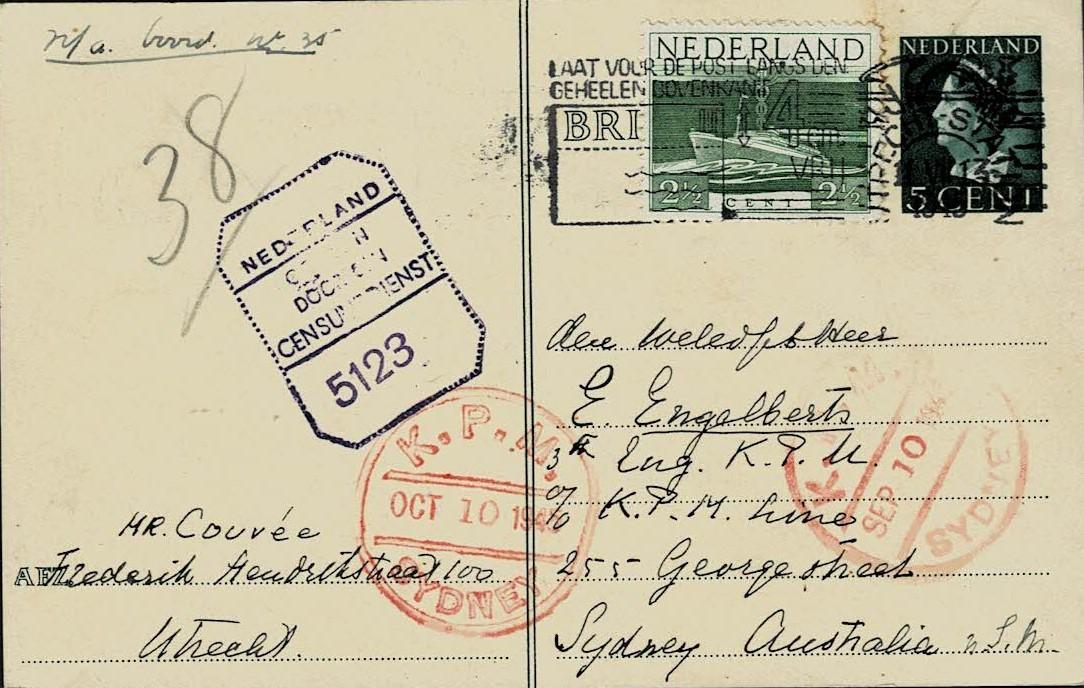 boord. nr 35
38
NEDERLAND
LAAT VOOR DE POST LANGS DEN
GEHEELEN BOVENKANT
4
BRI
2½ CENT 2½
NEDERLAND
5 CENT
NEDERLAND
CENSUURDIENST
5123
K.P.M.
OCT 10
SYDNEY
SEP 10
SYDNEY
E. Engelberts
3e Eng. K.P.M.
c/o K.P.M. Line
255 George street
Sydney Australia
MR. Couvée
AFZ. Frederik Hendrikstraat 100
Utrecht.